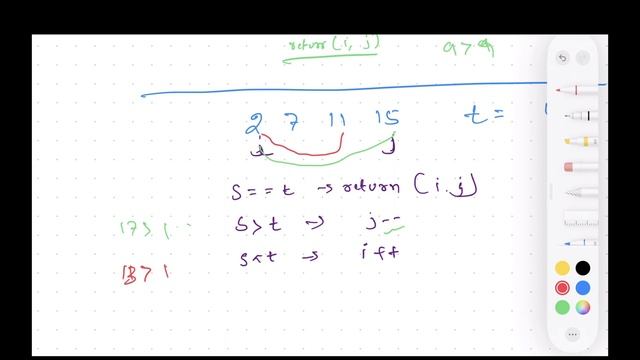 return (i, j)
9 > 9
2 7 11 15 t =
i j
S == t → return (i, j)
17 > S > t → j--
13 > S < t → i++